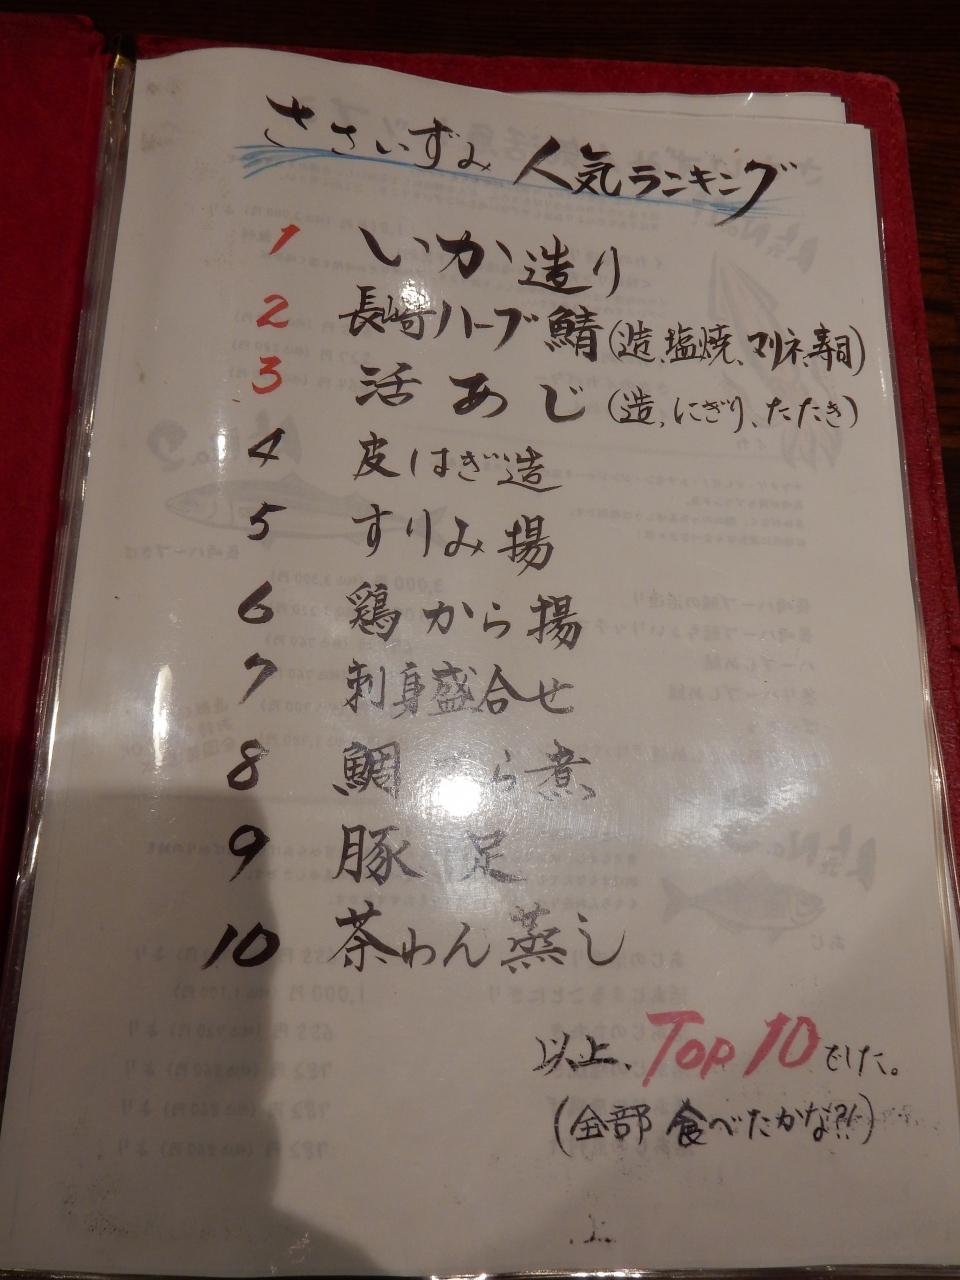 ささいずみ 人気ランキング
1 いか造り
2 長崎ハーブ鯖(造、塩焼、マリネ、寿司)
3 活あじ(造、にぎり、たたき)
4 皮はぎ造
5 すりみ揚
6 鶏から揚
7 刺身盛合せ
8 鯛あら煮
9 豚足
10 茶わん蒸し
以上、Top10でした。
(全部食べたかな?!)